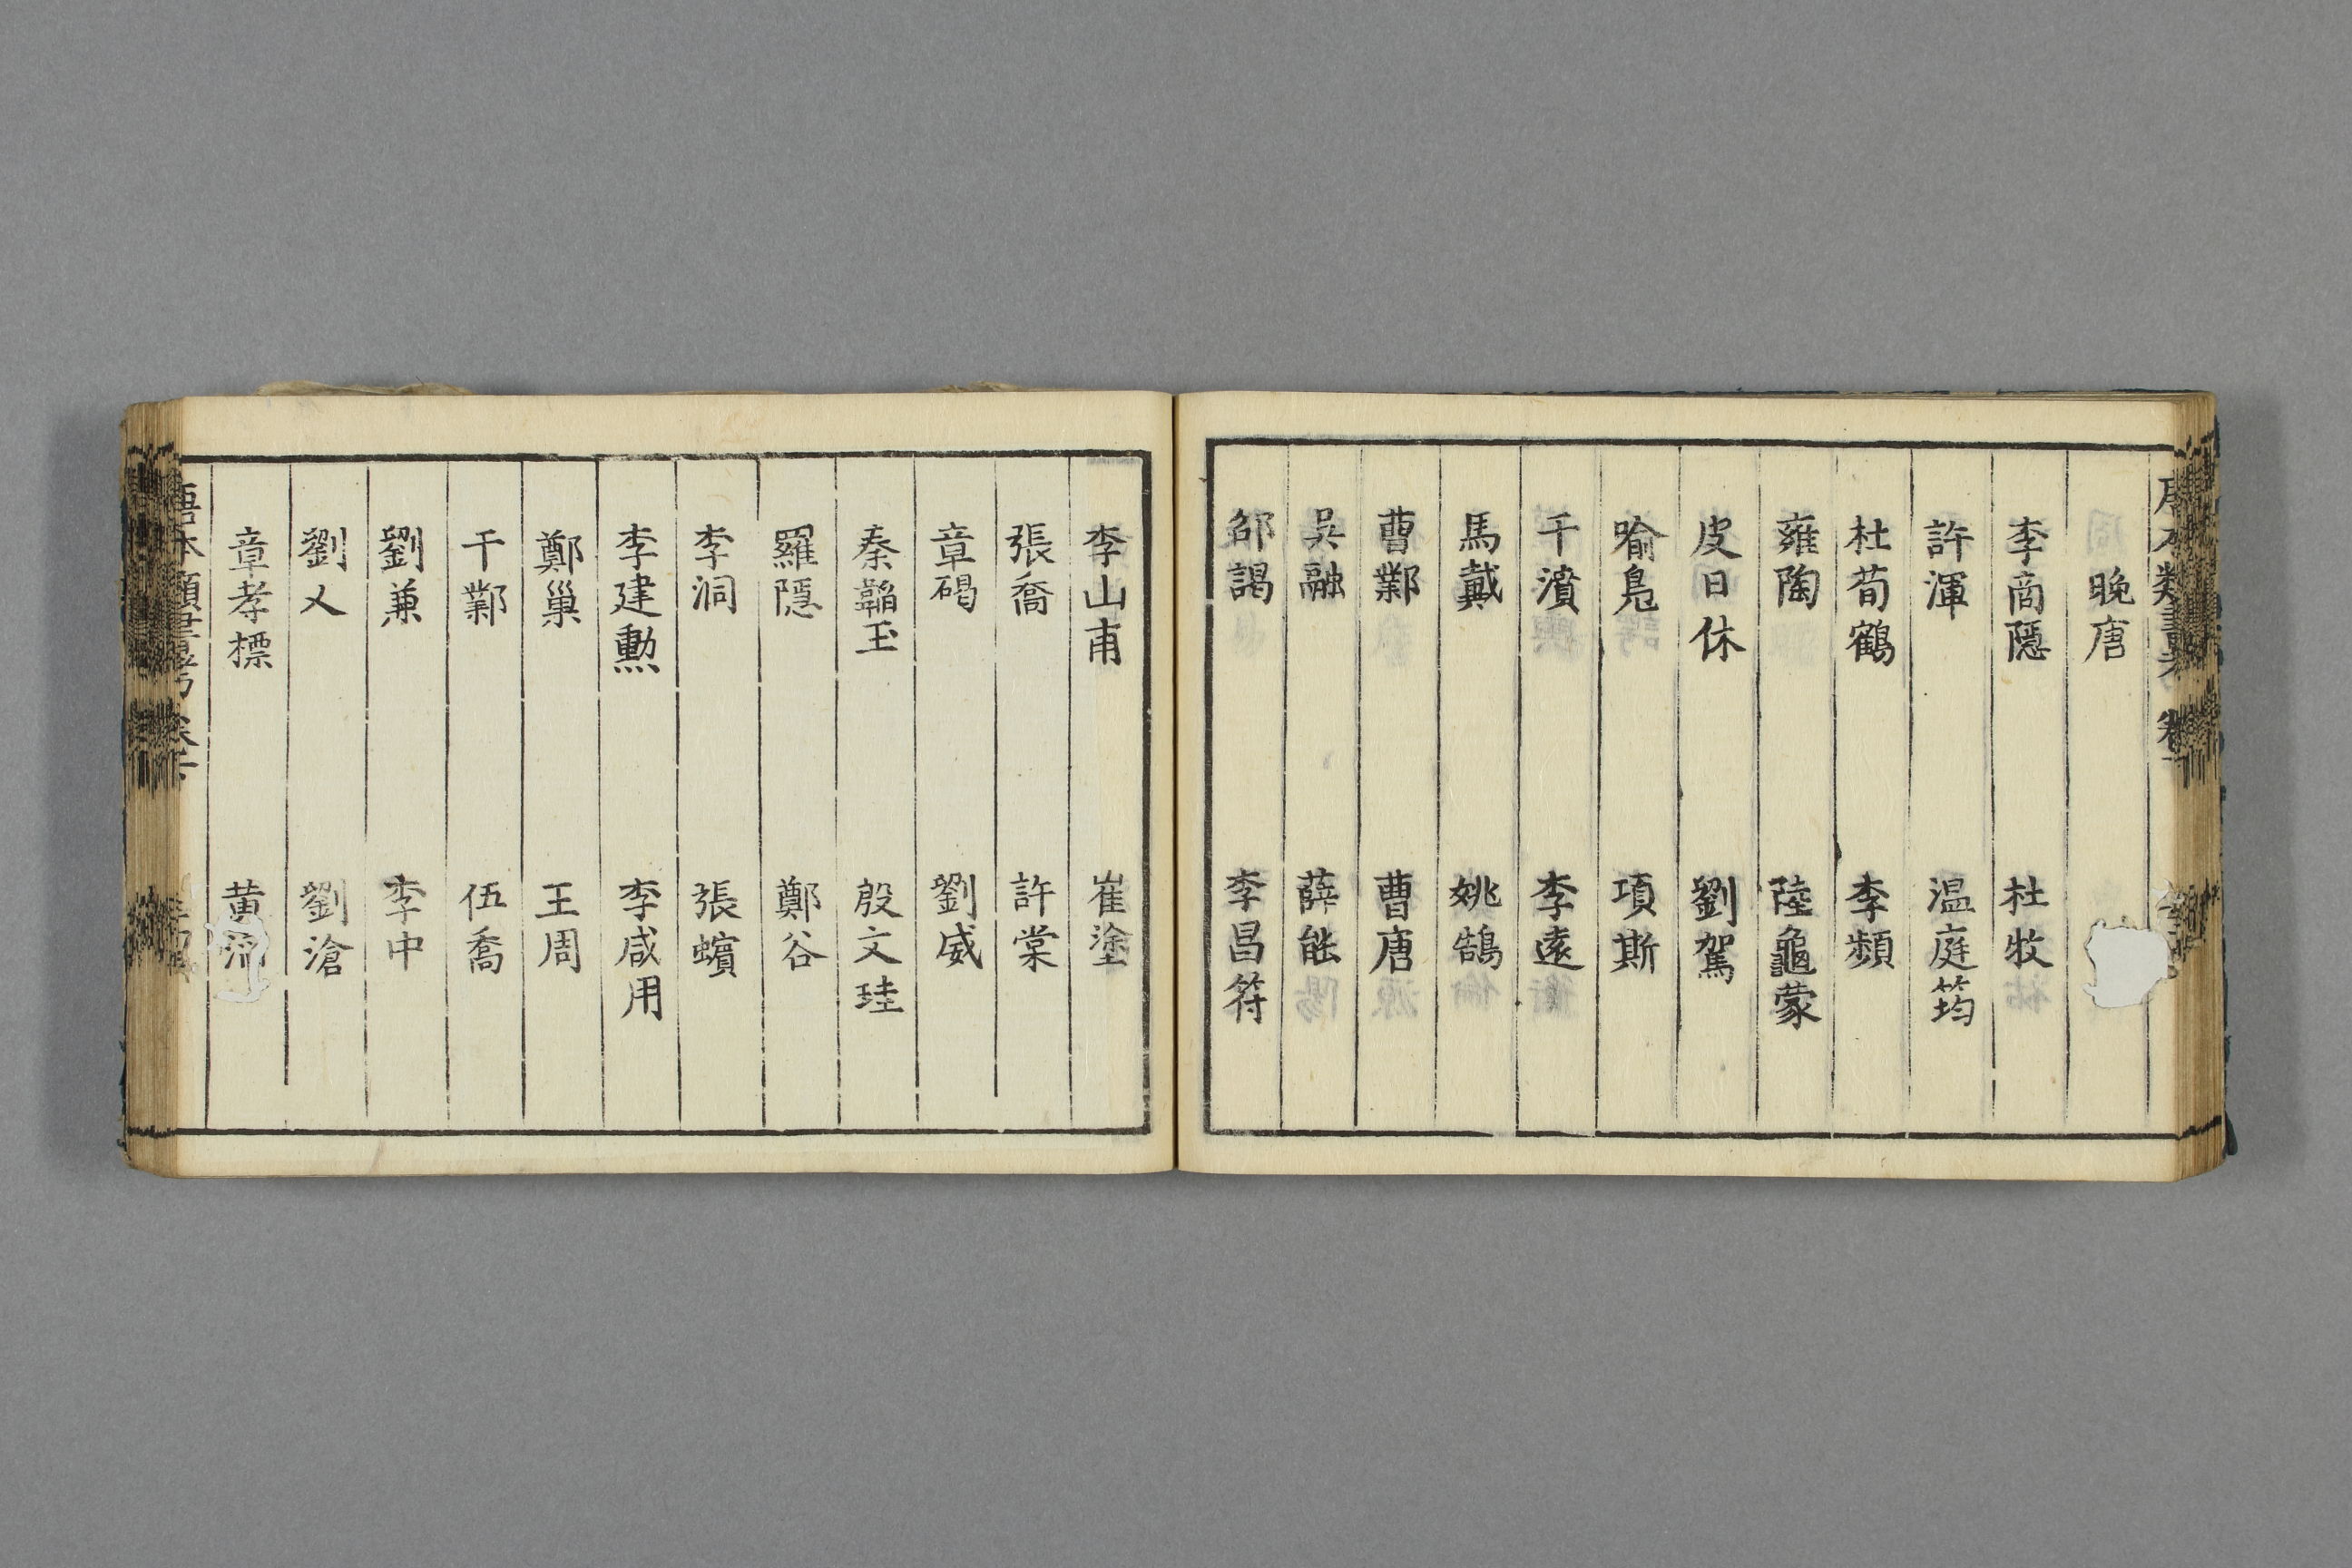 晚唐
李商隱 杜牧
許渾 温庭筠
杜荀鶴 李頻
雍陶 陸龜蒙
皮日休 劉駕
喻鳧 項斯
于濆 李遠
馬戴 姚鵠
曹鄴 曹唐
吳融 薛能
邵謁 李昌符
李山甫 崔塗
張喬 許棠
章碣 劉威
秦韜玉 殷文珪
羅隱 鄭谷
李洞 張蠙
李建勳 李咸用
鄭巢 王周
于鄴 伍喬
劉兼 李中
劉乂 劉滄
章孝標 黄